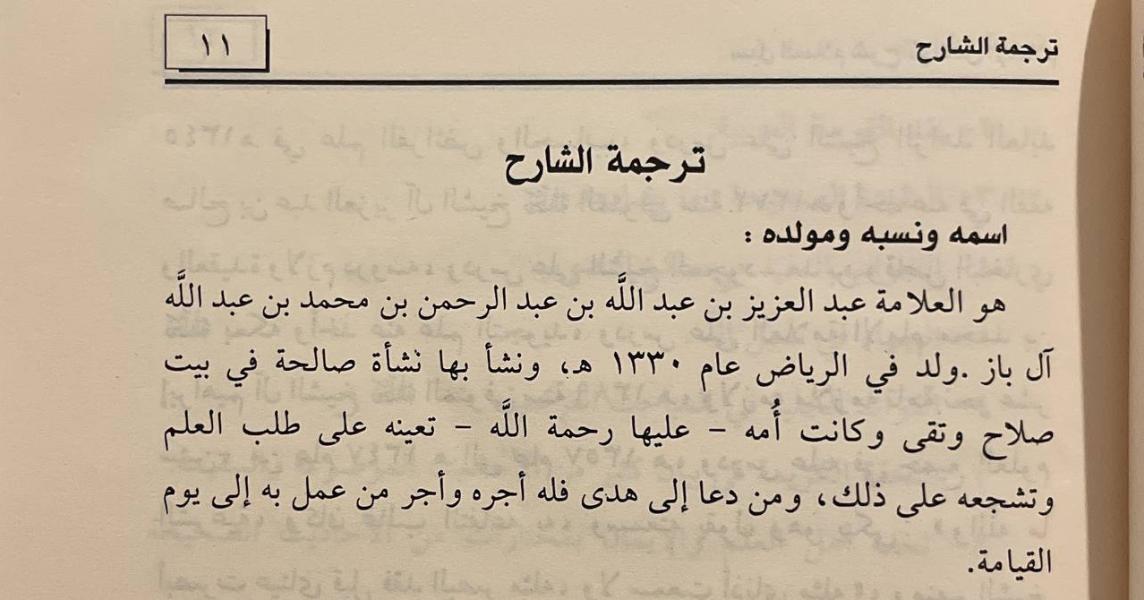 ترجمة الشارح
١١
ترجمة الشارح
اسمه ونسبه ومولده :
هو العلامة عبد العزيز بن عبد اللَّه بن عبد الرحمن بن محمد بن عبد اللَّه
آل باز .ولد في الرياض عام ١٣٣٠ هـ، ونشأ بها نشأة صالحة في بيت
صلاح وتقى وكانت أُمه - عليها رحمة اللَّه - تعينه على طلب العلم
وتشجعه على ذلك، ومن دعا إلى هدى فله أجره وأجر من عمل به إلى يوم
القيامة.